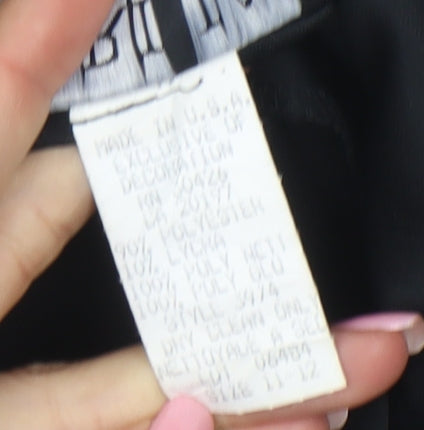 MADE IN U.S.A.
EXCLUSIVE OF
DECORATION
RN 30426
CA 20177
90% POLYESTER
10% LYCRA
100% POLY NET!
100% POLY GLU
STYLE 3974
DRY CLEAN ONLY
NETTOYALE A SEC
CUT 06484
SIZE 11-12